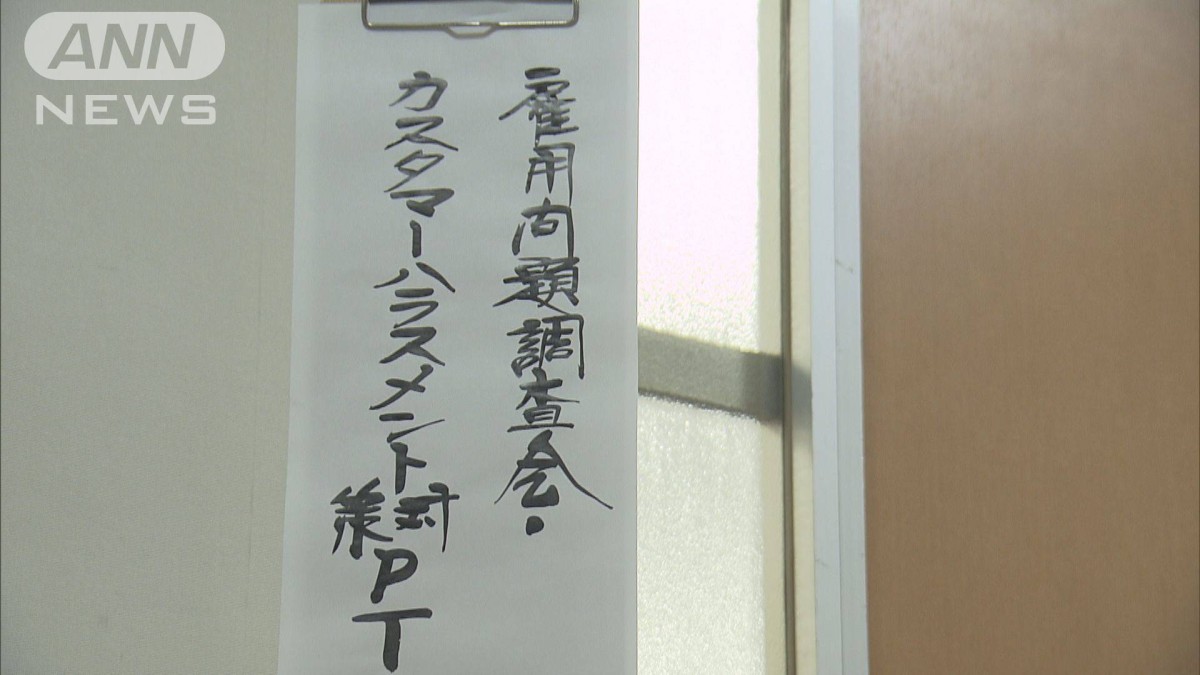 ANN
NEWS
雇用問題調査会・
カスタマーハラスメント対策PT